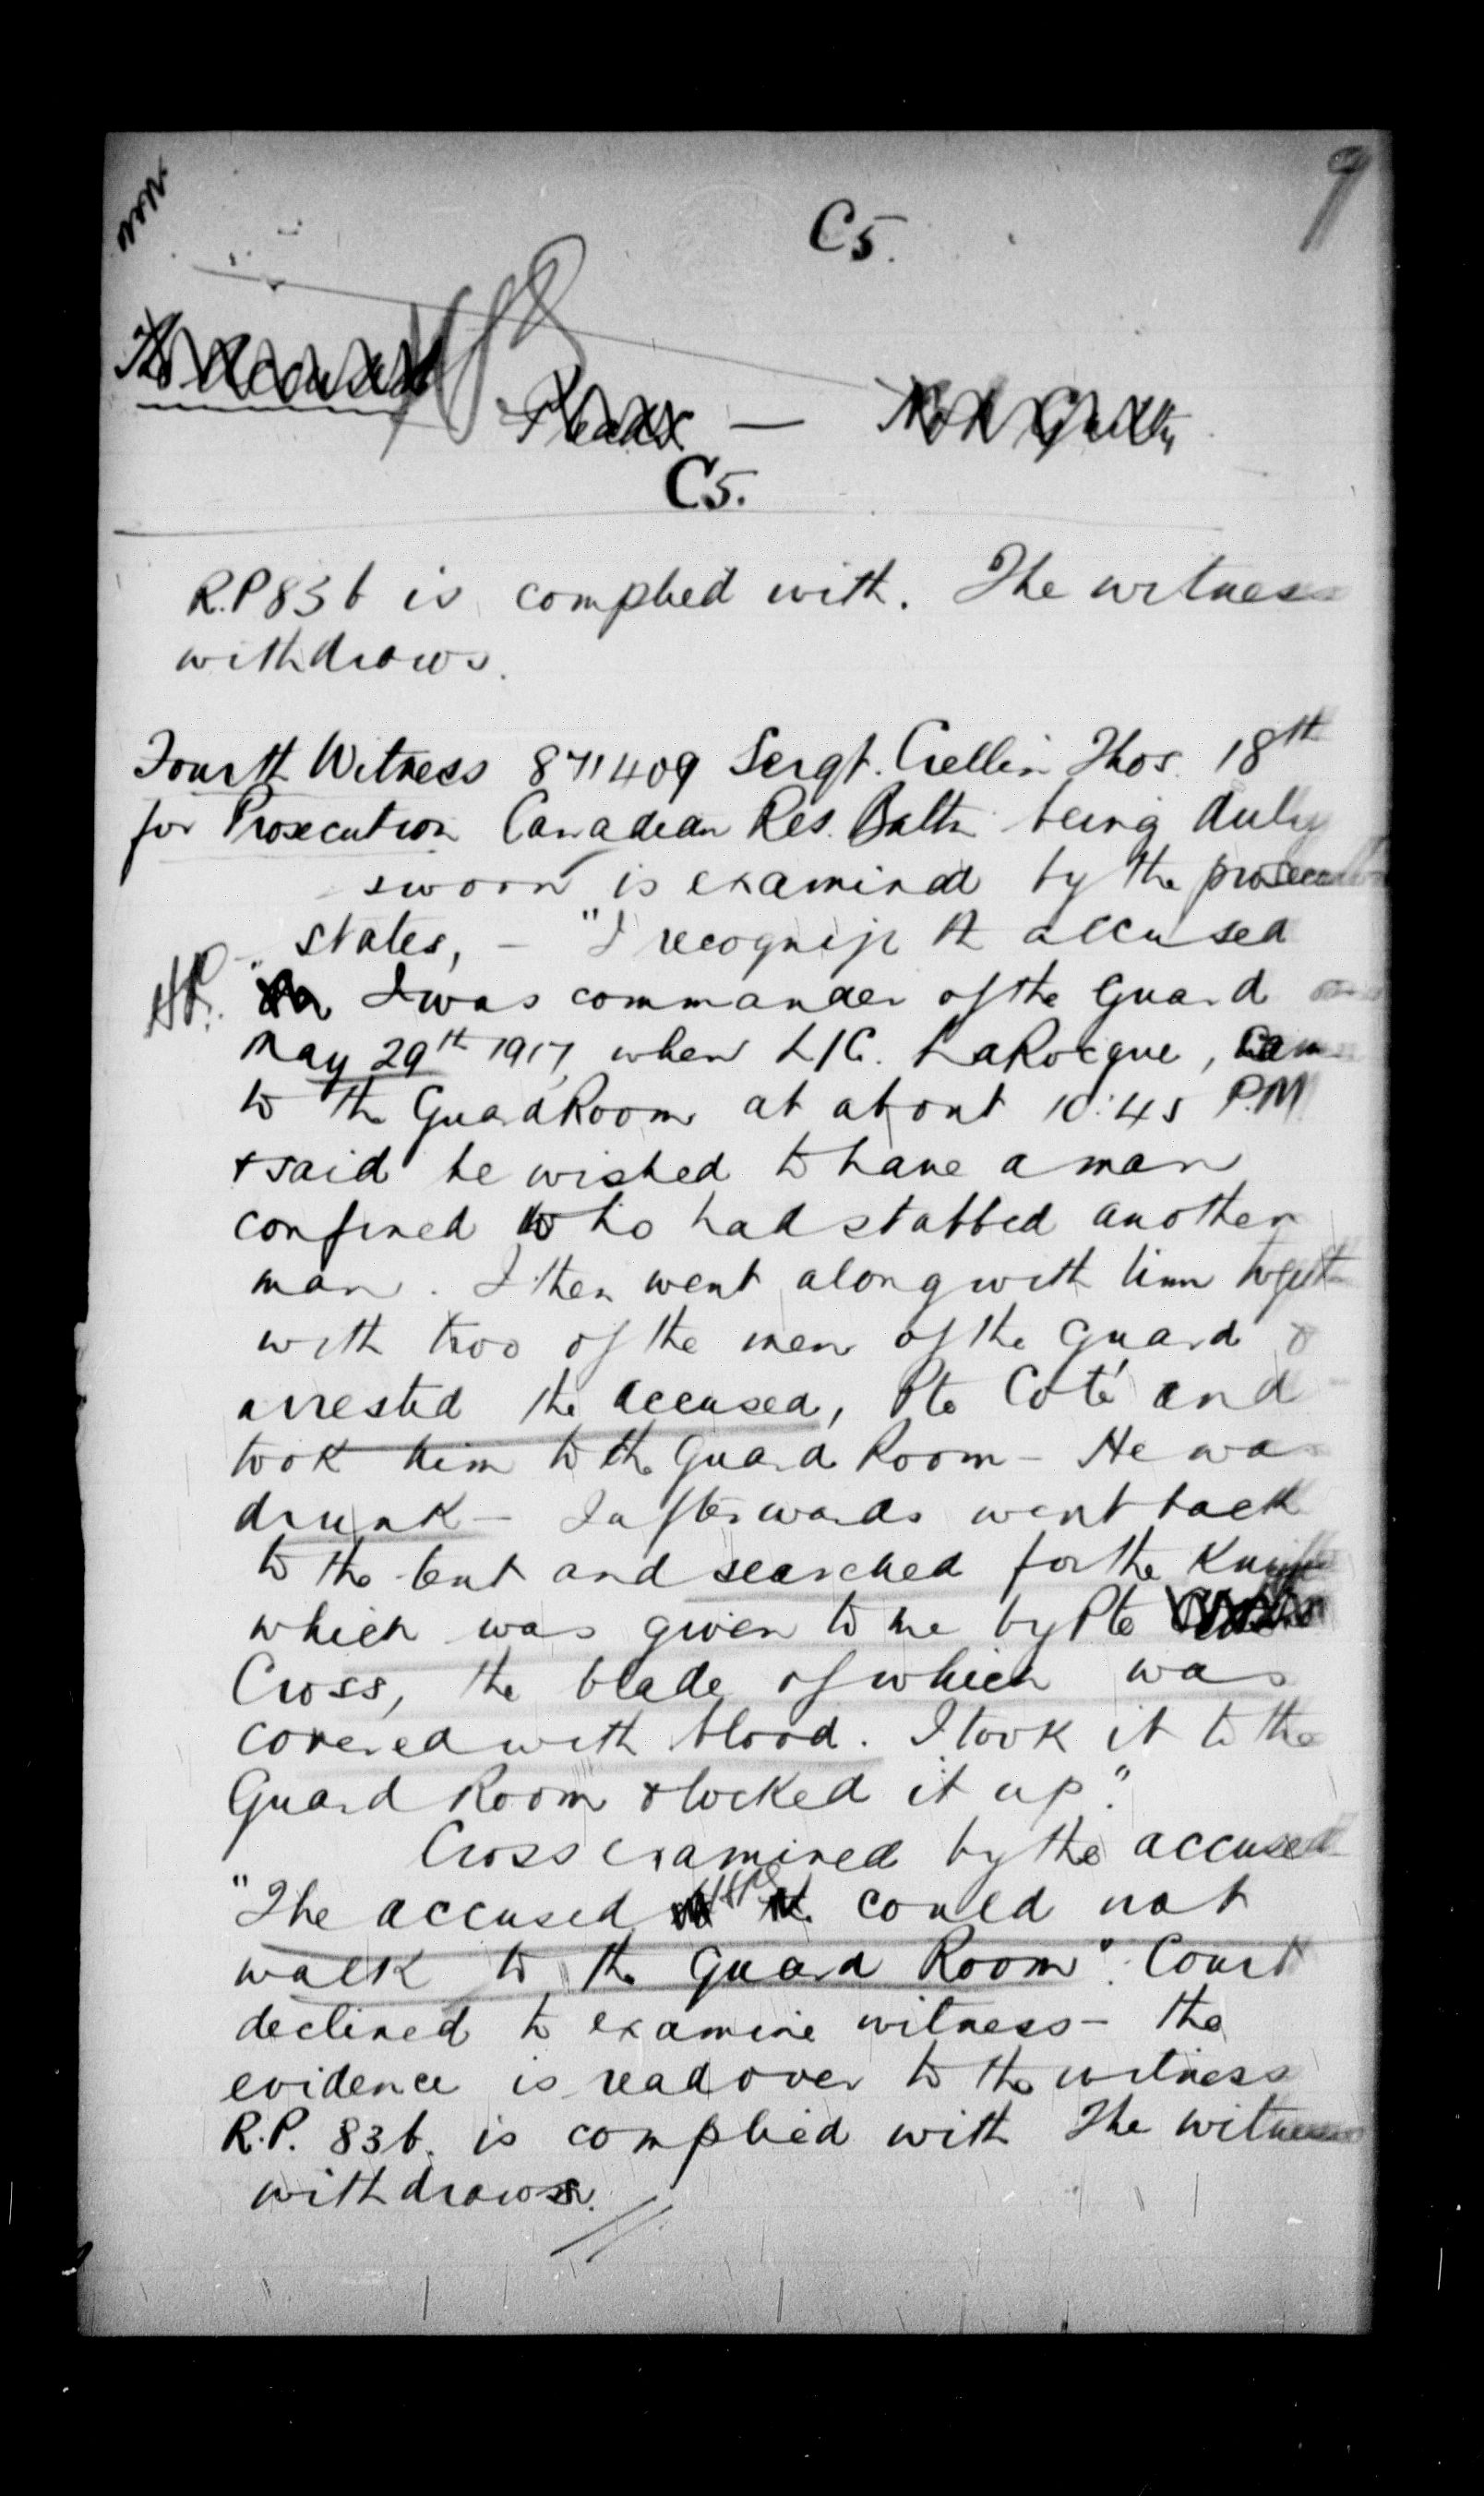 9
C5.
The Accused
Pleads — Not Guilty
C5.
R.P 83 b is complied with. The witness
withdraws.
Fourth Witness 871409 Sergt. Crellin Thos. 18th
for Prosecution Canadian Res. Baltn being duly
sworn is examined by the prosecution
states, - "I recognize the accused
I was commander of the Guard on
May 29th 1917, when L/C. LaRocque, came
to the GuardRoom at about 10:45 P.M
& said he wished to have a man
confined who had stabbed another
man. I then went along with him together
with two of the men of the Guard &
arrested the accused, Pte Coté and
took him to the Guard Room - He was
drunk - I afterwards went back
to the tent and searched for the Knife
which was given to me by Pte
Cross, the blade of which was
covered with blood. I took it to the
Guard Room & locked it up."
Cross examined by the accused
"The accused could not
walk to the Guard Room". Court
declined to examine witness - the
evidence is read over to the witness
R.P. 83b. is complied with The witness
withdraws.